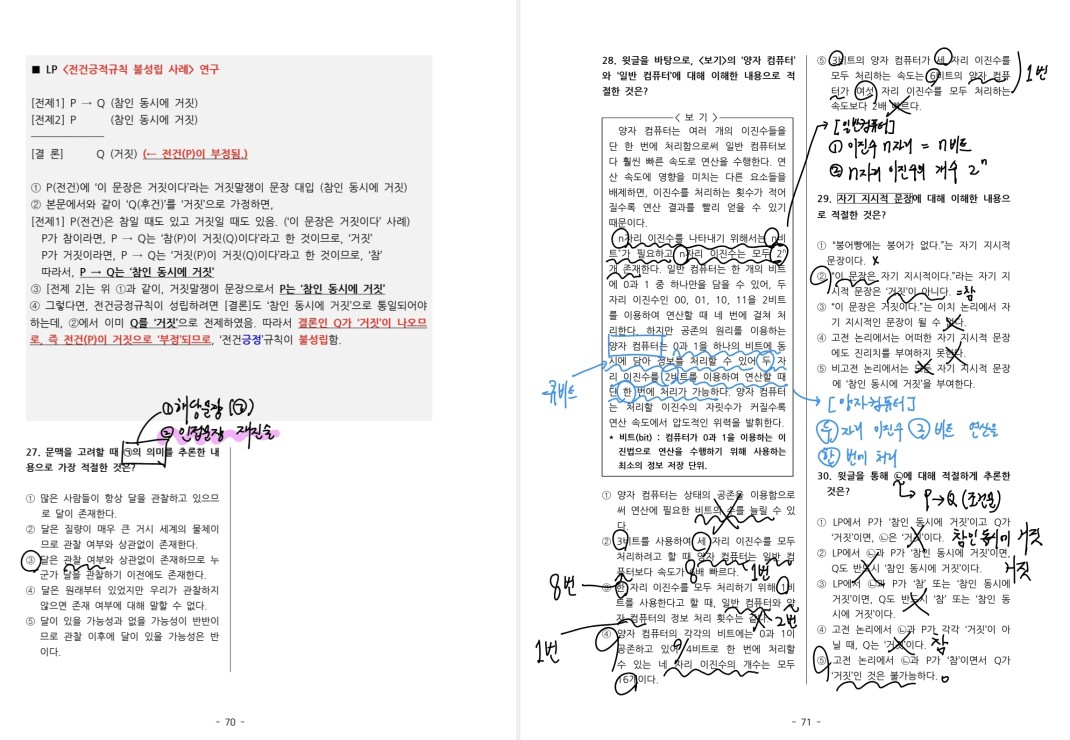 ■ LP <전건긍적규칙 불성립 사례> 연구
[전제1] P → Q (참인 동시에 거짓)
[전제2] P (참인 동시에 거짓)
[결 론] Q (거짓) (← 전건(P)이 부정됨.)
① P(전건)에 ‘이 문장은 거짓이다’라는 거짓말쟁이 문장 대입 (참인 동시에 거짓)
② 본문에서와 같이 ‘Q(후건)’를 ‘거짓’으로 가정하면,
[전제1] P(전건)은 참일 때도 있고 거짓일 때도 있음. (‘이 문장은 거짓이다’ 사례)
P가 참이라면, P → Q는 ‘참(P)이 거짓(Q)이다’라고 한 것이므로, ‘거짓’
P가 거짓이라면, P → Q는 ‘거짓(P)이 거짓(Q)이다’라고 한 것이므로, ‘참’
따라서, P → Q는 ‘참인 동시에 거짓’
③ [전제 2]는 위 ①과 같이, 거짓말쟁이 문장으로서 P는 ‘참인 동시에 거짓’
④ 그렇다면, 전건긍정규칙이 성립하려면 [결론]도 ‘참인 동시에 거짓’으로 통일되어야
하는데, ②에서 이미 Q를 ‘거짓’으로 전제하였음. 따라서 결론인 Q가 ‘거짓’이 나오므
로, 즉 전건(P)이 거짓으로 ‘부정’되므로, ‘전건긍정’규칙이 불성립함.
① 해당문장 (㉠)
② 인접문장 재진술
27. 문맥을 고려할 때 ㉠의 의미를 추론한 내
용으로 가장 적절한 것은?
① 많은 사람들이 항상 달을 관찰하고 있으므
로 달이 존재한다.
② 달은 질량이 매우 큰 거시 세계의 물체이
므로 관찰 여부와 상관없이 존재한다.
③ 달은 관찰 여부와 상관없이 존재하므로 누
군가 달을 관찰하기 이전에도 존재한다.
④ 달은 원래부터 있었지만 우리가 관찰하지
않으면 존재 여부에 대해 말할 수 없다.
⑤ 달이 있을 가능성과 없을 가능성이 반반이
므로 관찰 이후에 달이 있을 가능성은 반
이다.
- 70 -
28. 윗글을 바탕으로, <보기>의 ‘양자 컴퓨터’
와 ‘일반 컴퓨터’에 대해 이해한 내용으로 적
절한 것은?
< 보 기 >
양자 컴퓨터는 여러 개의 이진수들을
단 한 번에 처리함으로써 일반 컴퓨터보
다 훨씬 빠른 속도로 연산을 수행한다. 연
산 속도에 영향을 미치는 다른 요소들을
배제하면, 이진수를 처리하는 횟수가 적어
질수록 연산 결과를 빨리 얻을 수 있기
때문이다.
n자리 이진수를 나타내기 위해서는 n비
트*가 필요하고 n자리 이진수는 모두 2ⁿ
개 존재한다. 일반 컴퓨터는 한 개의 비트
에 0과 1 중 하나만을 담을 수 있어, 두
자리 이진수인 00, 01, 10, 11을 2비트
를 이용하여 연산할 때 네 번에 걸쳐 처
리한다. 하지만 공존의 원리를 이용하는
양자 컴퓨터는 0과 1을 하나의 비트에 동
시에 담아 정보를 처리할 수 있어 두 자
리 이진수를 2비트를 이용하여 연산할 때
단 한 번에 처리가 가능하다. 양자 컴퓨터
는 처리할 이진수의 자릿수가 커질수록
연산 속도에서 압도적인 위력을 발휘한다.
* 비트(bit) : 컴퓨터가 0과 1을 이용하는 이
진법으로 연산을 수행하기 위해 사용하는
최소의 정보 저장 단위.
큐비트
① 양자 컴퓨터는 상태의 공존을 이용함으로
써 연산에 필요한 비트의 수를 늘릴 수 있
다.
② 3비트를 사용하여 세 자리 이진수를 모두
처리하려고 할 때 양자 컴퓨터는 일반 컴
퓨터보다 속도가 6배 빠르다.
8 1번
8번
③ 한 자리 이진수를 모두 처리하기 위해 1비
트를 사용한다고 할 때, 일반 컴퓨터와 양
자 컴퓨터의 정보 처리 횟수는 같다.
2번
1번
④ 양자 컴퓨터의 각각의 비트에는 0과 1이
공존하고 있어 4비트로 한 번에 처리할
수 있는 네 자리 이진수의 개수는 모두
16개이다.
⑤ 3비트의 양자 컴퓨터가 세 자리 이진수를
모두 처리하는 속도는 6비트의 양자 컴퓨
터가 여섯 자리 이진수를 모두 처리하는
속도보다 2배 빠르다.
1번
[일반컴퓨터]
① 이진수 n자리 = n비트
② n자리 이진수의 개수 2ⁿ
29. 자기 지시적 문장에 대해 이해한 내용으
로 적절한 것은?
① “붕어빵에는 붕어가 없다.”는 자기 지시적
문장이다. x
② “이 문장은 자기 지시적이다.”라는 자기 지
시적 문장은 ‘거짓’이 아니다. =참
③ “이 문장은 거짓이다.”는 이치 논리에서 자
기 지시적인 문장이 될 수 없다.
④ 고전 논리에서는 어떠한 자기 지시적 문장
에도 진리치를 부여하지 못한다.
⑤ 비고전 논리에서는 모든 자기 지시적 문장
에 ‘참인 동시에 거짓’을 부여한다.
[양자컴퓨터]
두 자리 이진수 2 비트 연산을
한 번에 처리
30. 윗글을 통해 ㉡에 대해 적절하게 추론한
것은?
P→Q (조건문)
① LP에서 P가 ‘참인 동시에 거짓’이고 Q가
‘거짓’이면, ㉡은 ‘거짓’이다. 참인 동시에 거짓
② LP에서 ㉡과 P가 ‘참인 동시에 거짓’이면,
Q도 반드시 ‘참인 동시에 거짓’이다. 거짓
③ LP에서 ㉡과 P가 ‘참’ 또는 ‘참인 동시에
거짓’이면, Q도 반드시 ‘참’ 또는 ‘참인 동
시에 거짓’이다.
④ 고전 논리에서 ㉡과 P가 각각 ‘거짓’이 아
닐 때, Q는 ‘거짓’이다. 참
⑤ 고전 논리에서 ㉡과 P가 ‘참’이면서 Q가
‘거짓’인 것은 불가능하다. o
- 71 -